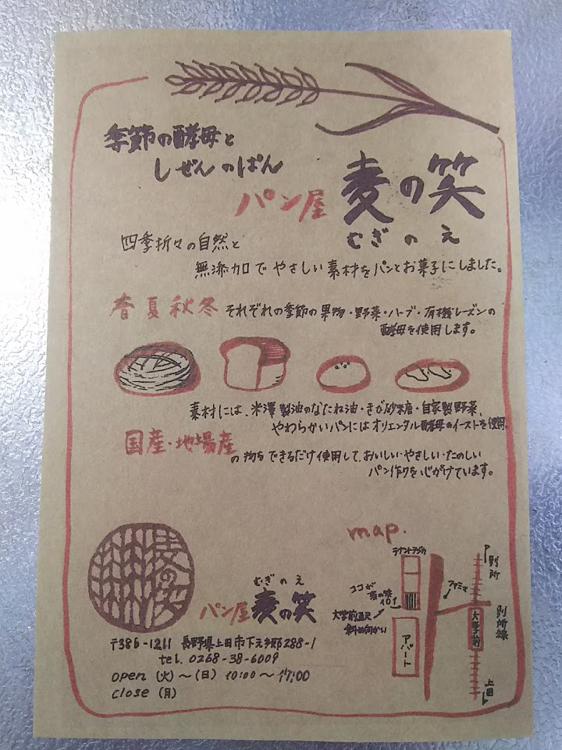 季節の酵母と
しぜんのぱん
パン屋 麦の笑
むぎのえ
四季折々の自然と
無添加でやさしい素材をパンとお菓子にしました。
春夏秋冬 それぞれの季節の果物・野菜・ハーブ・有機レーズンの
酵母を使用します。
素材には、米澤製油のなたね油・きび砂糖・自家製野菜、
やわらかいパンにはオリエンタル酵母のイーストを使用。
国産・地場産 の物をできるだけ使用して、おいしい・やさしい・たのしい
パン作りを心がけています。
麦の笑
むぎのえ
パン屋 麦の笑
〒386-1211 長野県上田市下之郷288-1
tel. 0268-38-6009
open (火)〜(日) 10:00〜17:00
close (月)
map.
ココが
麦の笑
大学前通り
斜め向かい
アパート
ファミマ
大学前
別所
別所線
上田